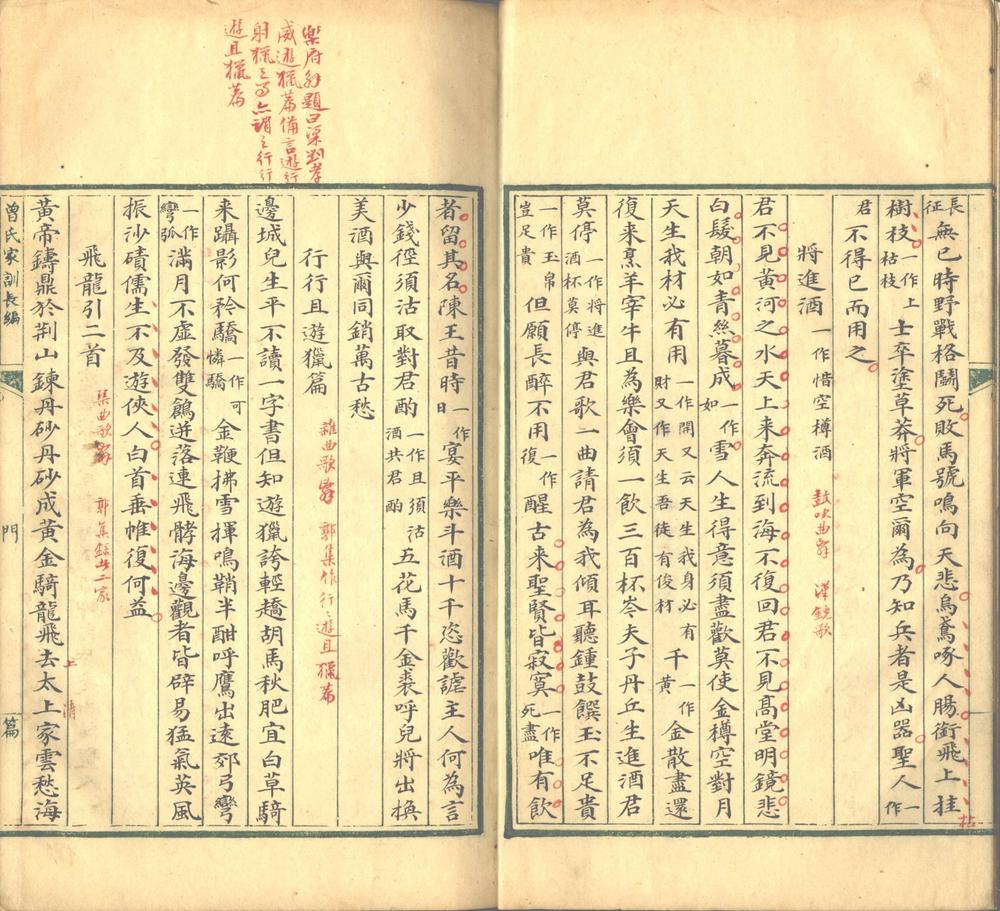 長征無已時野戰格鬭死敗馬號鳴向天悲烏鳶啄人腸銜飛上挂
樹枝一作上枯枝士卒塗草莽將軍空爾為乃知兵者是凶器聖人一作
枯
君不得已而用之
將進酒一作惜空樽酒 鼓吹曲辭 漢鐃歌
君不見黃河之水天上来奔流到海不復回君不見高堂明鏡悲
白髮朝如青絲暮成一作如雪人生得意須盡歡莫使金樽空對月
天生我材必有用一作開又云天生我身必有財又作天生吾徒有俊材千一作黃金散盡還
復来烹羊宰牛且為樂會須一飲三百杯岑夫子丹丘生進酒君
莫停一作將進酒杯莫停與君歌一曲請君為我傾耳聽鍾鼓饌玉不足貴
一作玉帛豈足貴但願長醉不用一作復醒古来聖賢皆寂寞一作死盡唯有飲
樂府解題曰梁劉孝
威遊獵篇備言遊行
射獵之事亦謂之行行
遊且獵篇
者留其名陳王昔時一作日宴平樂斗酒十千恣歡謔主人何為言
少錢徑須沽取對君酌一作且須沽酒共君酌五花馬千金裘呼兒將出換
美酒與爾同銷萬古愁
行行且遊獵篇 雜曲歌辭 郭集作行行遊且獵篇
邊城兒生平不讀一字書但知遊獵誇輕趫胡馬秋肥宜白草騎
来躡影何矜驕一作可憐驕金鞭拂雪揮鳴鞘半酣呼鷹出遠郊弓彎
一作彎弧滿月不虛發雙鶬迸落連飛髇海邊觀者皆辟易猛氣英風
振沙磧儒生不及遊俠人白首垂帷復何益
飛龍引二首 琴曲歌辭 郭集錄此二家
上 清
黃帝鑄鼎於荆山鍊丹砂丹砂成黃金騎龍飛去太上家雲愁海
曾氏家訓長編 門 篇